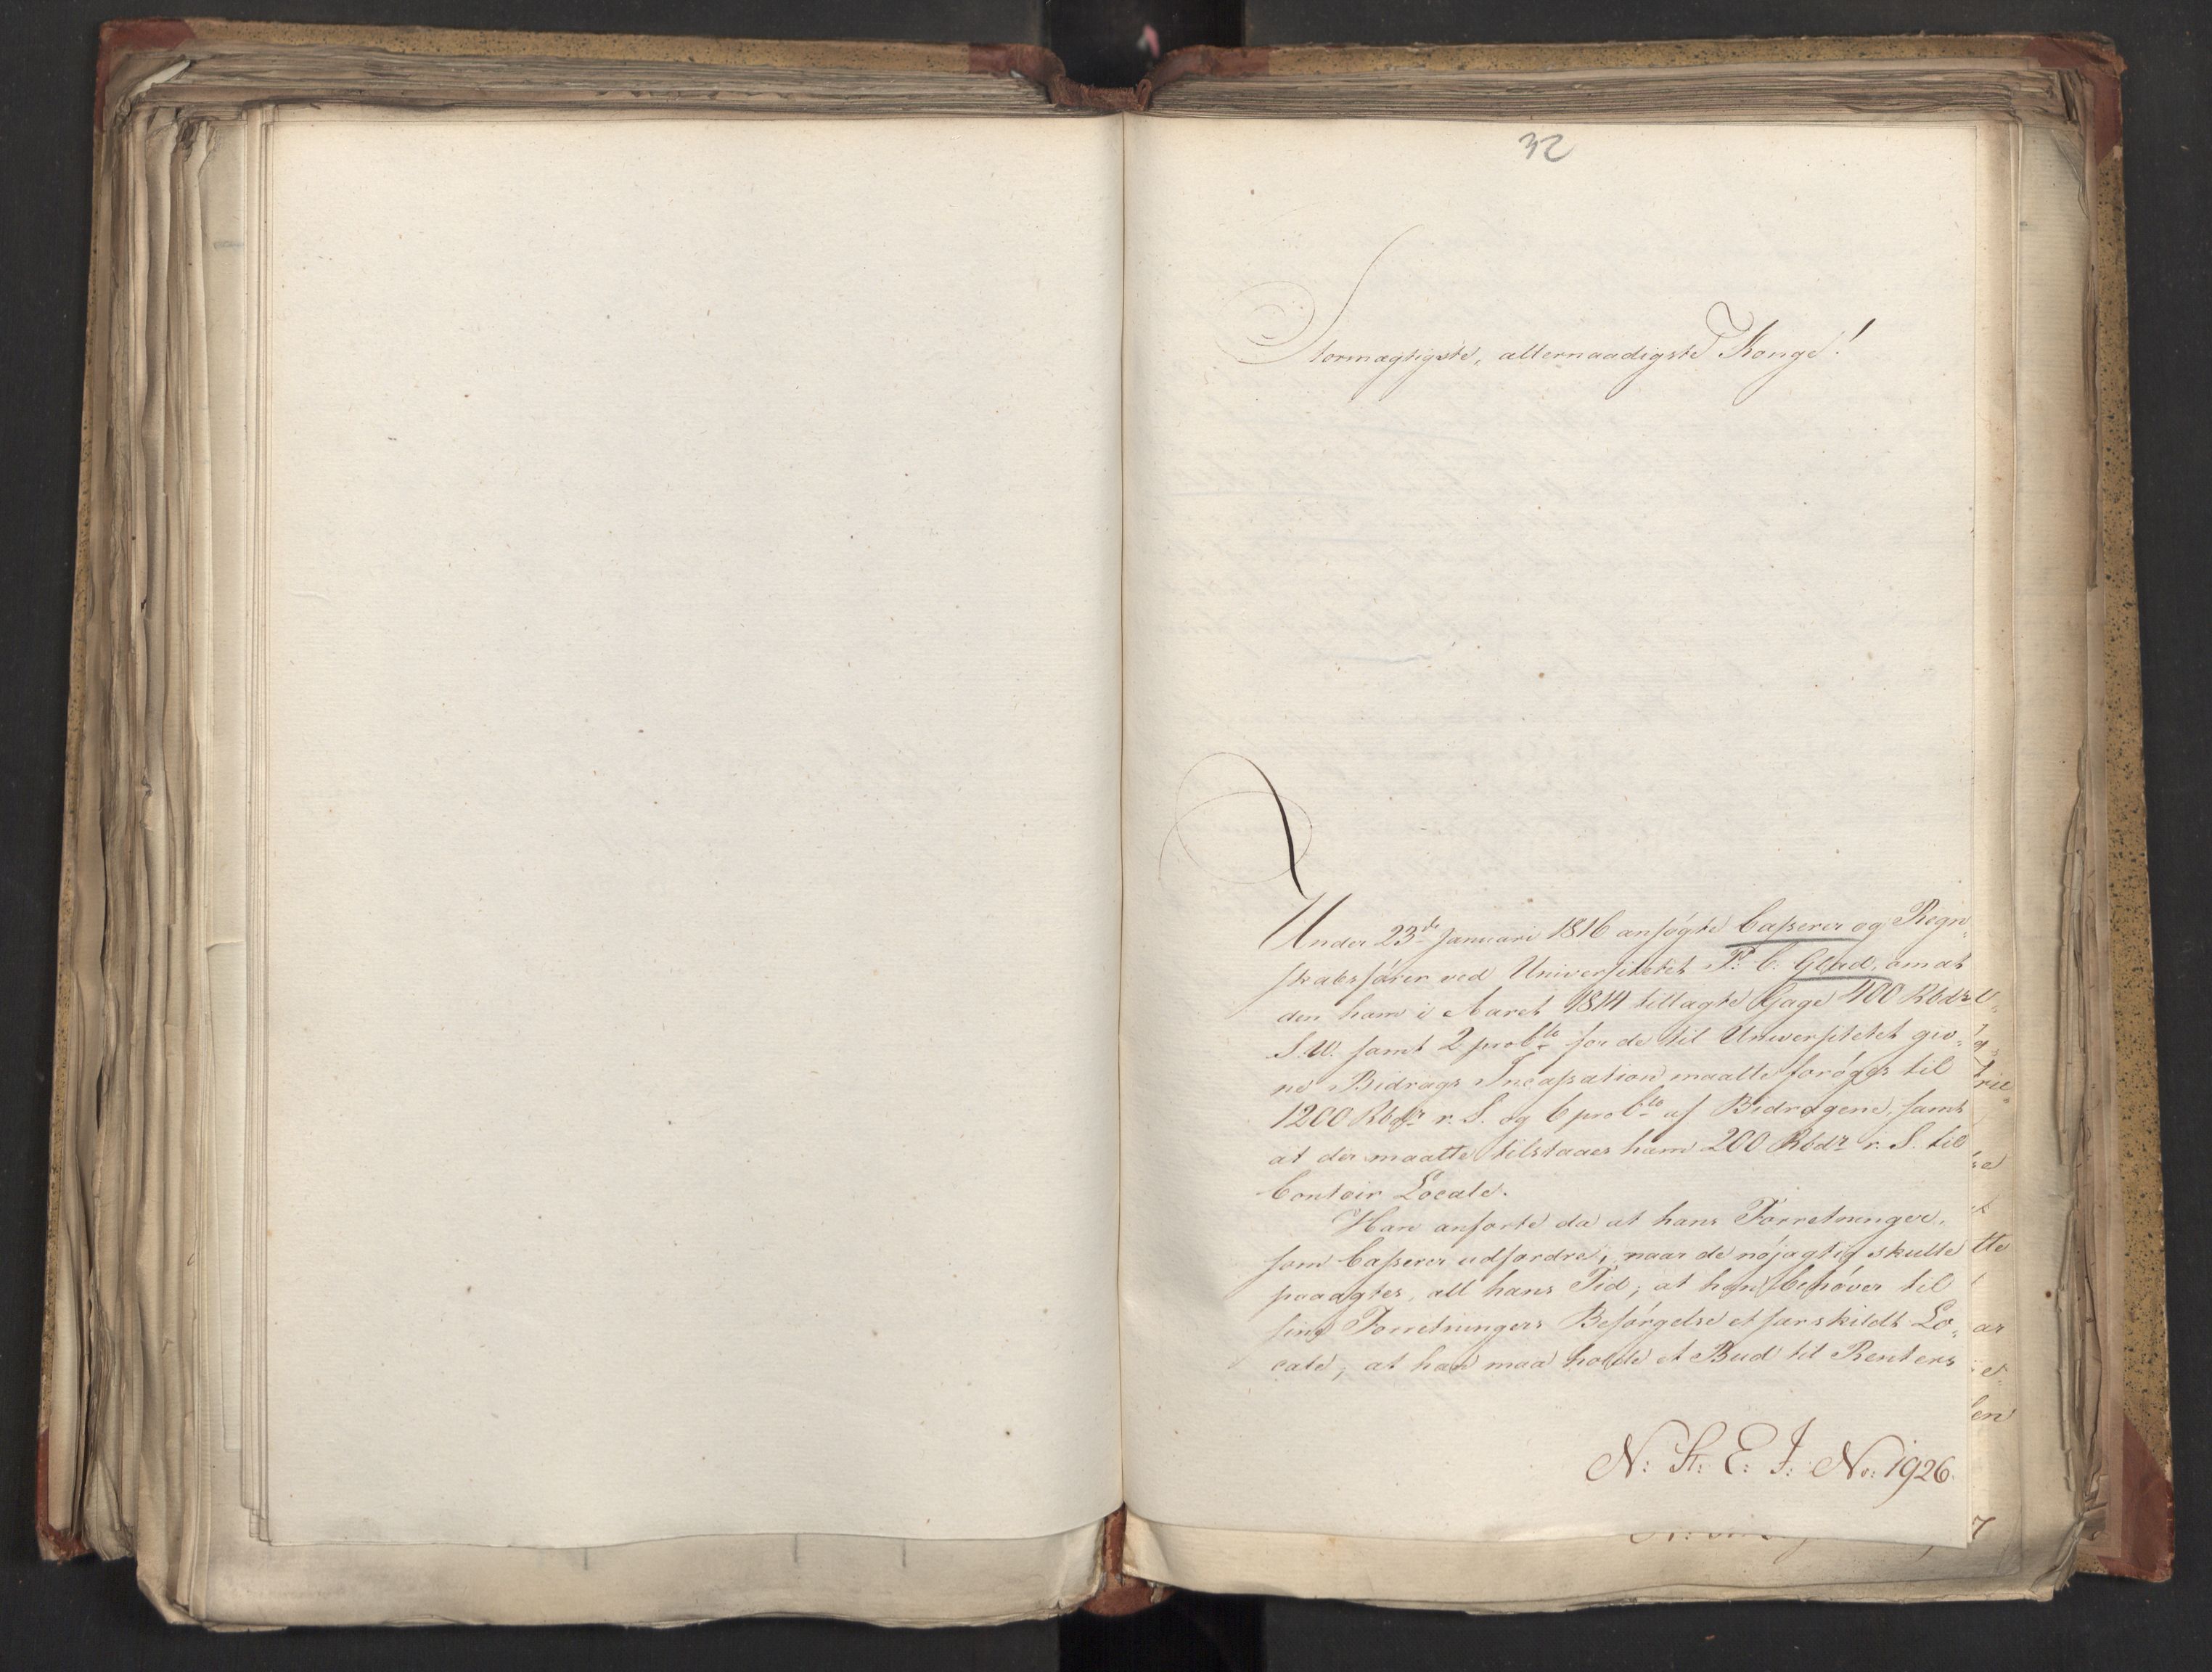 32
Stormægtigste, allernaadigste Konge!
Under 23de Januari 1816 ansøgte Casserer og Regn-
skabsfører ved Universitetet P. C. Glad, om at
den ham i Aaret 1814 tillagte Gage 400 Rbdr
S.V. samt 2 proCto for de til Universitetet giv-
ne Bidrags Incassation maatte forøges til
1200 Rbdr r. S. og 6 proCto af Bidragene, samt
at der maatte tilstaaes ham 200 Rbdr r. S. til
Contoir Locale.
Han anførte da at hans Forretninger,
som Casserer udfordre, naar de nøjagtig skulle
paaagtes, all hans Tid; at han behøver til
sine Forretningers Besørgelse et særskildt Lo-
cale, at han maa holde et Bud til Renters
N: St: E: J: No: 1926.